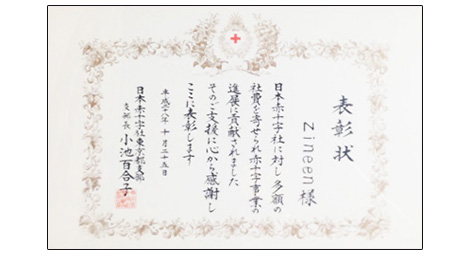 表彰状
Zineen様
日本赤十字社に対し多額の
社費を寄せられ赤十字事業の
進展に貢献されました
そのご支援に心から感謝し
ここに表彰します
平成二八年十月二十五日
日本赤十字社東京都支部
支部長 小池百合子